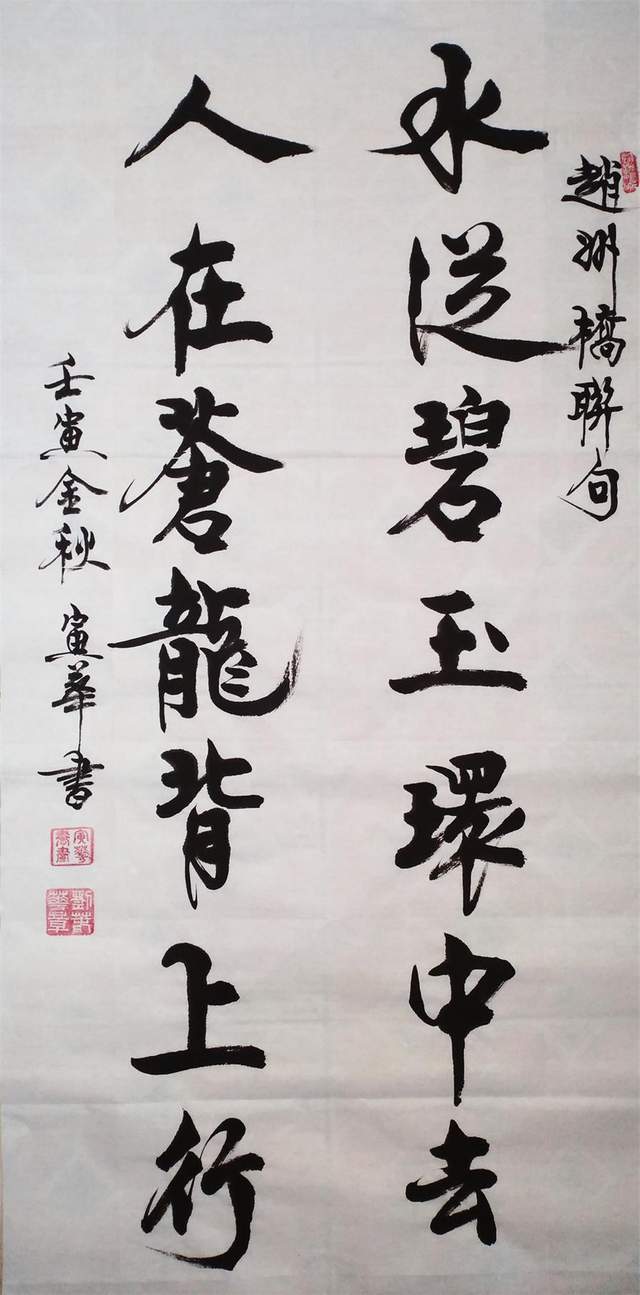 趙州橋聯句
水從碧玉環中去
人在蒼龍背上行
壬寅金秋 寅華書